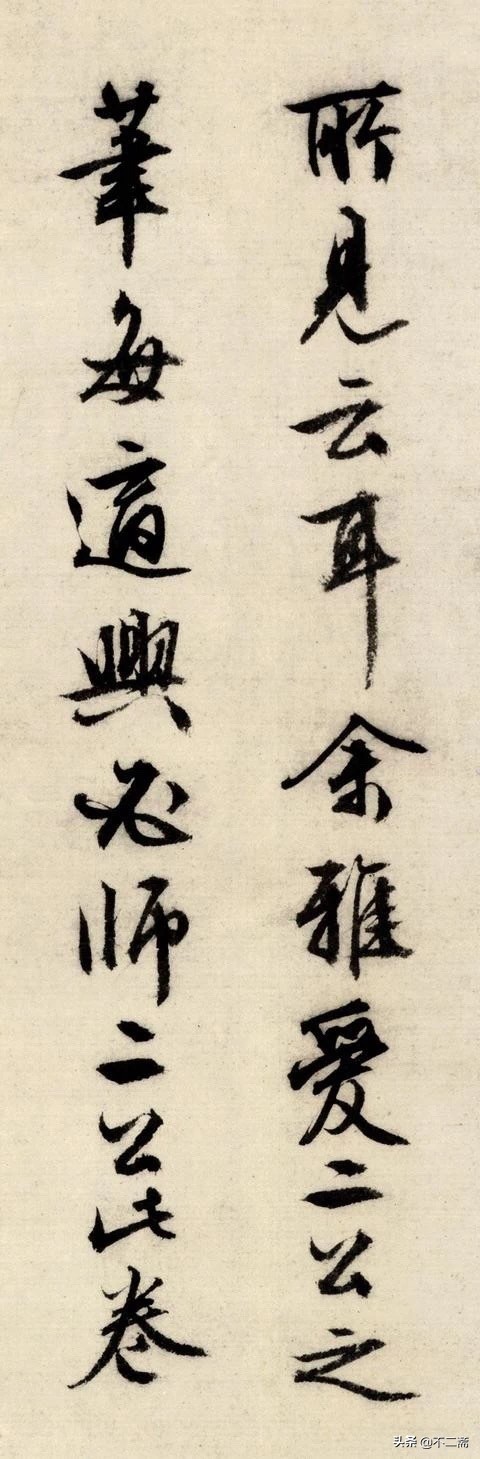 所見云耳余雅愛二公之
筆每適興必師二公此卷
头条 @不二斋